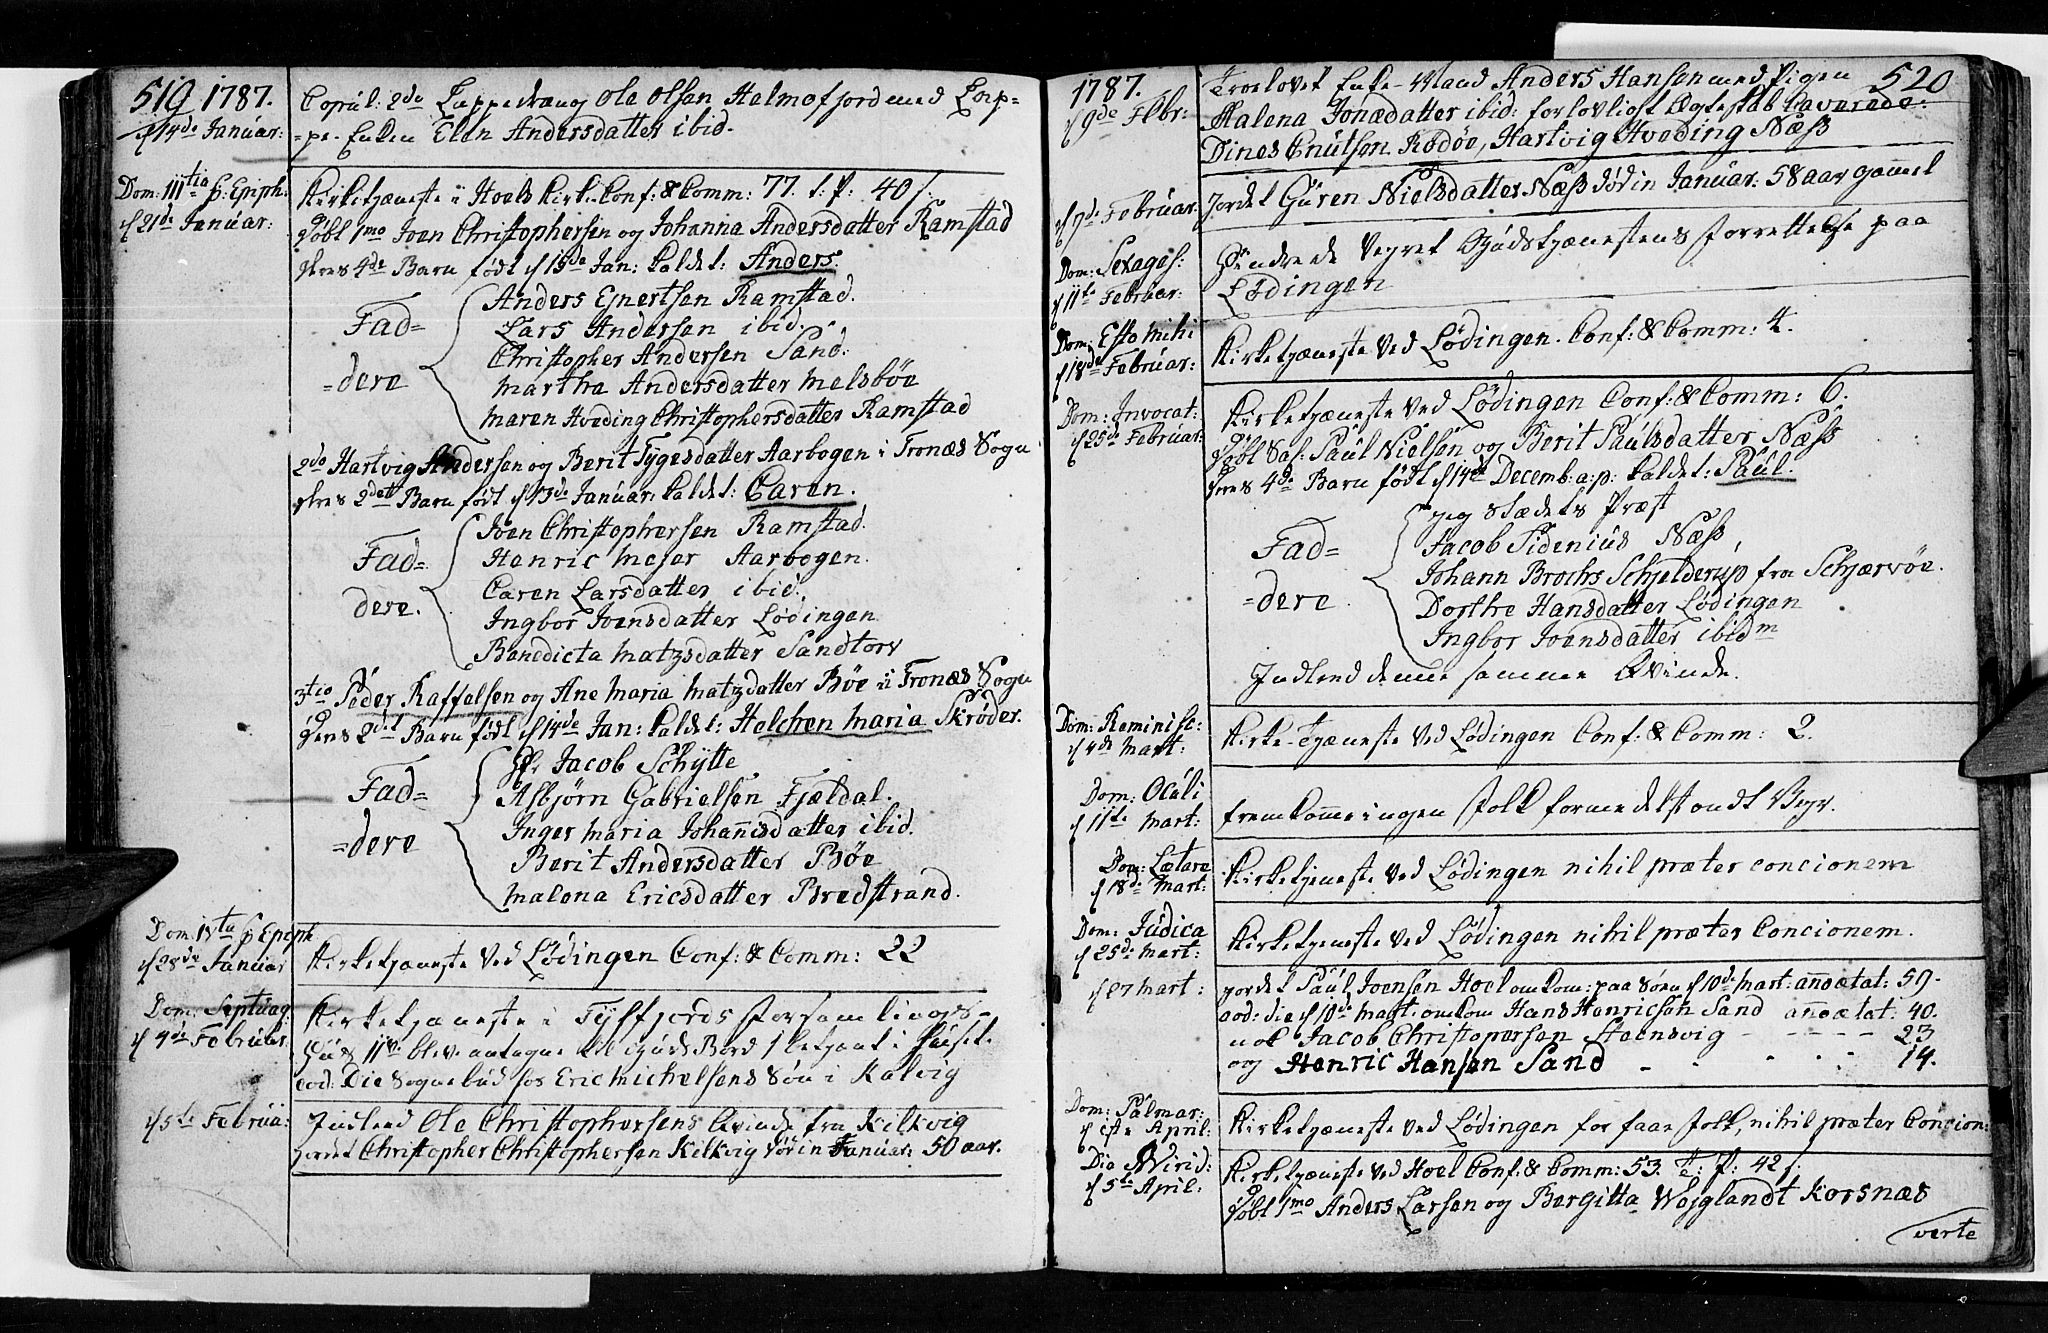 519 1787.
d 14de Januar:
Copul: 2do Lappedræng Ole Olsen Helmofjord med Lap=
=pe-Enken Elen Andersdatter ibid.
Dom: IIItia p. Epiph.
d 21de Januar:
Kirketjæneste i Hoels Kirke. Conf: & Comm: 77. t: P: 40 s.
Døbt 1mo Joen Christophersen og Johanna Andersdatter Ramstad
Deres 4de Barn født d 15de Jan: kaldet: Anders.
Fad=
=dere
Anders Ejnertsen Ramstad.
Lars Andersen ibid.
Christopher Andersen Sand.
Martha Andersdatter Melsbøe
Maren Hveding Christophersdatter Ramstad
2do Hartvig Andersen og Berit Tygesdatter Aarbogen i Tronæs Sogn
Deres 2det Barn født d 13de Januar: kaldet: Caren.
Fad=
dere.
Joen Christophersen Ramstad.
Henric Mejer Aarbogen.
Caren Larsdatter ibid.
Ingbor Joensdatter Lødingen
Benedicta Matzsdatter Sandtorv
3tio Peder Raffelsen og Ane Maria Matzdatter Bøe i Tronæs Sogn
Deres 2det Barn født d 14de Jan: kaldet: Helchen Maria Skrøder.
Fad=
=dere
Hr. Jacob Schytte
Asbjørn Gabrielsen Fjeldal.
Inger Maria Johannisdatter ibid.
Berit Andersdatter Bøe
Malena Ericsdatter Bredstrand.
Dom: IVta p Epiph
d 28de Januar
Kirketjæneste ved Lødingen Conf: & Comm: 22
Dom. Septuag:
d 4de Februar.
Kirketjæneste i Tysfjords Forsamlings-
Huus 11ve bleve antagne til Guds Bord sketjent i Huset
eod: Die Sognebud hos Eric Michelsens Søn i Kalvig
d 5te Februa:
Indled Ole Christophersens Qvinde fra Kilkvig
jordet Christopher Christophersen Kilkvig dør in Januar: 50 aar.
1787.
520
d 9de Febr:
Troelovet Enke-Mand Anders Hansen med Pigen
Malena Jonædatter ibid: for lovligt Ægteskab Caverede:
Dines Cnutsen Rødøe, Hartvig Hveding Næss
d 7de Februar.
Jordet Guren Nielsdatter Næss død in Januar: 58 aar gamel
Dom: Sexages:
d 11te Februar:
Hindrede Vegret Gudstjænestens Forrettelse paa
Lødingen
Dom: Esto mihi
d 18de Februar:
Kirketjæneste ved Lødingen. Conf: & Comm: 4.
Dom: Invocat:
d 25de Februar:
Kirketjæneste ved Lødingen Conf: & Comm: 6.
Døbt Sal: Paul Nielsen og Berit Paulsdatter Næss
Deres 4de Barn født d 14de Decemb: a: p: kaldet: Paul.
Fad=
=dere
Jeg Stædets Præst
Jacob Sidenius Næss,
Johann Brochs Schjelderup fra Schjærvøe.
Dorthe Hansdatter Lødingen
Ingbor Joensdatter ibidm
Indled denne samme Qvinde.
Dom: Reminisc:
d 4de Mart:
Kirke-Tjæneste ved Lødingen Conf: & Comm: 2.
Dom: Oculi
d 11te Mart:
fremkomme ingen Folk formedelst ondt Vejr.
Dom: Lætare
d 18de Mart:
Kirketjeneste ved Lødingen nihil præter concionem
Dom: Judica
d 25de Mart:
Kirketjeneste ved Lødingen nihil præter Concionem.
d 27 Mart:
jordet Paul Joensen Hoel omkom: paa Søen d 10de Mart: anno ætat: 59.
eod: die d 10de Mart: omkom Hans Henricsen Sand anno ætat: 40.
Jacob Christophersen Steensvig - - - - - 23
og Henric Hansen Sand - - - - 14.
Dom: Palmar:
d 1ste April:
Kirketjæneste ved Lødingen for faae Folk, nihil præter Concion:
Die Virid:
d 5te April:
Kirketjæneste ved Hoel Conf: & Comm: 53. t: P: 42 s.
Døbt 1mo Anders Larsen og Bergitta Wejglandt Korsnæs
verte